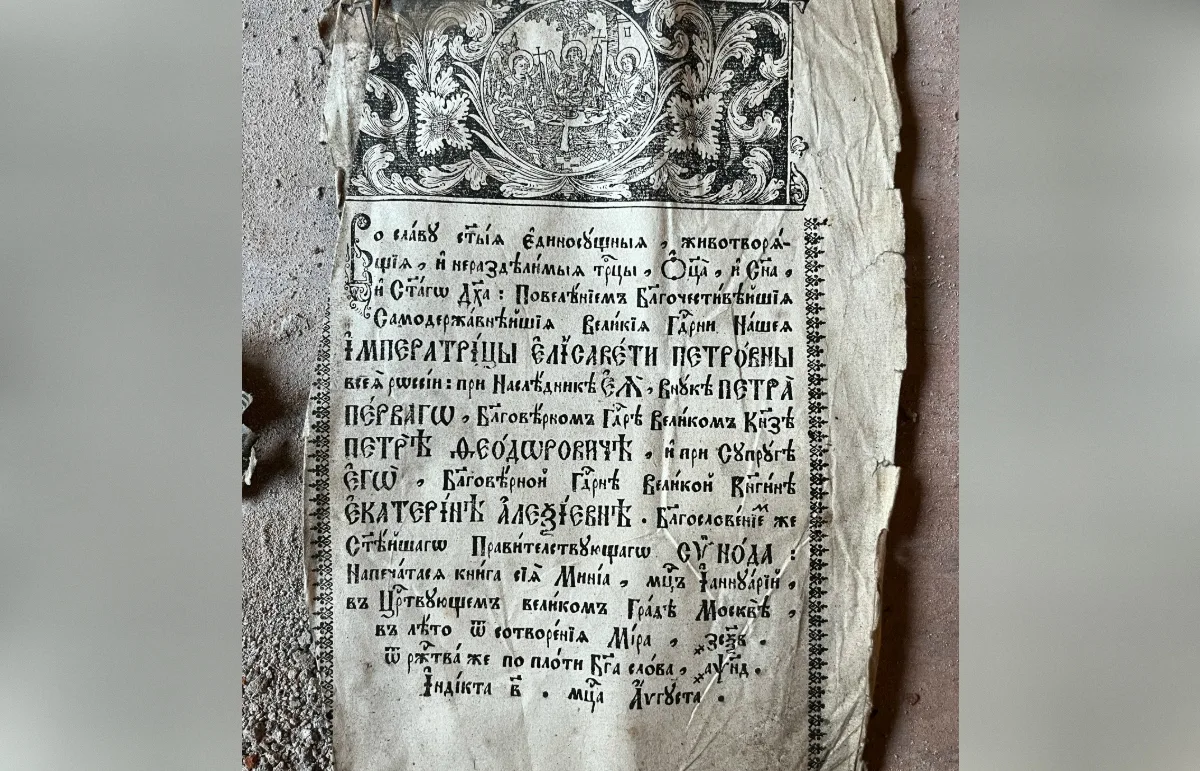 Во сла́ву ст҃ы́ѧ є҆диносꙋ́щныѧ , животворѧ́-
щїѧ , и҆ нераздѣли́мыѧ трⷪ҇цы , Ѻ҆ц҃а̀ , и҆ Сн҃а ,
и҆ Ст҃а́гѡ Дх҃а : Повелѣ́нїемъ Бл҃гочести́вѣйшїѧ
Самодержа́внѣйшїѧ Вели́кїѧ Гдⷭ҇рни На́шеѧ
І҆МПЕРАТРІ́ЦЫ Є҆ЛІСАВЕ́ТИ ПЕТРО́ВНЫ
всеѧ̀ рѡссі́и : при Наслѣ́дникѣ Є҆Ѧ̀ , Внꙋ́кѣ ПЕТРА̀
ПЕ́РВАГѠ , Бл҃говѣ́рномъ Гдⷭ҇рѣ Вели́комъ Кн҃зѣ
ПЕТРѢ̀ ѲЕО́ДѠРОВИЧѢ , и҆ при Сꙋпрꙋ́гѣ
Є҆ГѠ̀ , Бл҃говѣ́рной Гдⷭ҇рнѣ Вели́кой Кн҃ги́нѣ
Є҆КАТЕРІ́НѢ А҆ЛЕѮІ́ЕВНѢ . Бл҃гослове́нїемⸯ же
Ст҃ѣ́йшагѡ Прави́тельствꙋющагѡ СѴНО́ДА :
Напеча́тасѧ кни́га сїѧ̀ Мині́а , мцⷭ҇ъ І҆аннꙋа́рїй ,
въ Црⷭ҇твꙋющемъ вели́комъ Гра́дѣ Москвѣ̀ ,
въ лѣ́то ѿ сотворе́нїѧ Мі́ра , ҂зс҃ѯв .
ѿ ржⷭ҇тва́ же по пло́ти Бг҃а сло́ва , ҂аѱн҃д .
І҆ндікта в҃ . мцⷭ҇а А҆́ѵгꙋста .